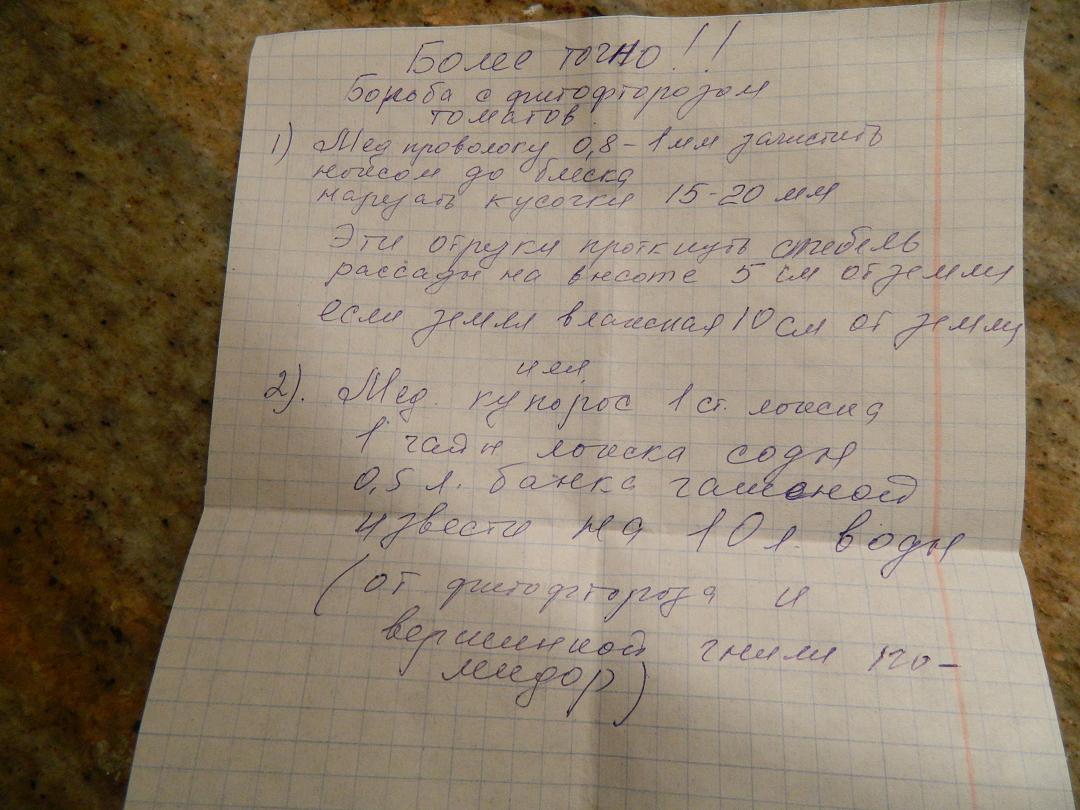 Более точно!!
Борьба с фитофторозом
томатов.
1) Мед проволоку 0,8 - 1 мм зачистить
до блеска
нарезать кусочки 15-20 мм
Эти отрезки проткнуть стебель
рассады на высоте 5 см от земли
если земля влажная 10 см от земли
или
2). Мед. купорос 1 ст. ложка
1 чайн ложка соды
0,5 л. банка гашеной
извести на 10 л. воды
(от фитофтороза и
вершинной гнили по-
мидор)